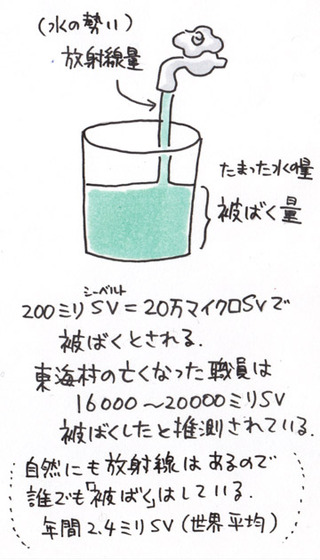 (水の勢い)
放射線量
たまった水の量
被ばく量
シーベルト
200ミリSV=20万マイクロSVで
被ばくとされる.
東海村の亡くなった職員は
16000〜20000ミリSV
被ばくしたと推測されている.
自然にも放射線はあるので
誰でも「被ばく」はしている.
年間2.4ミリSV(世界平均)